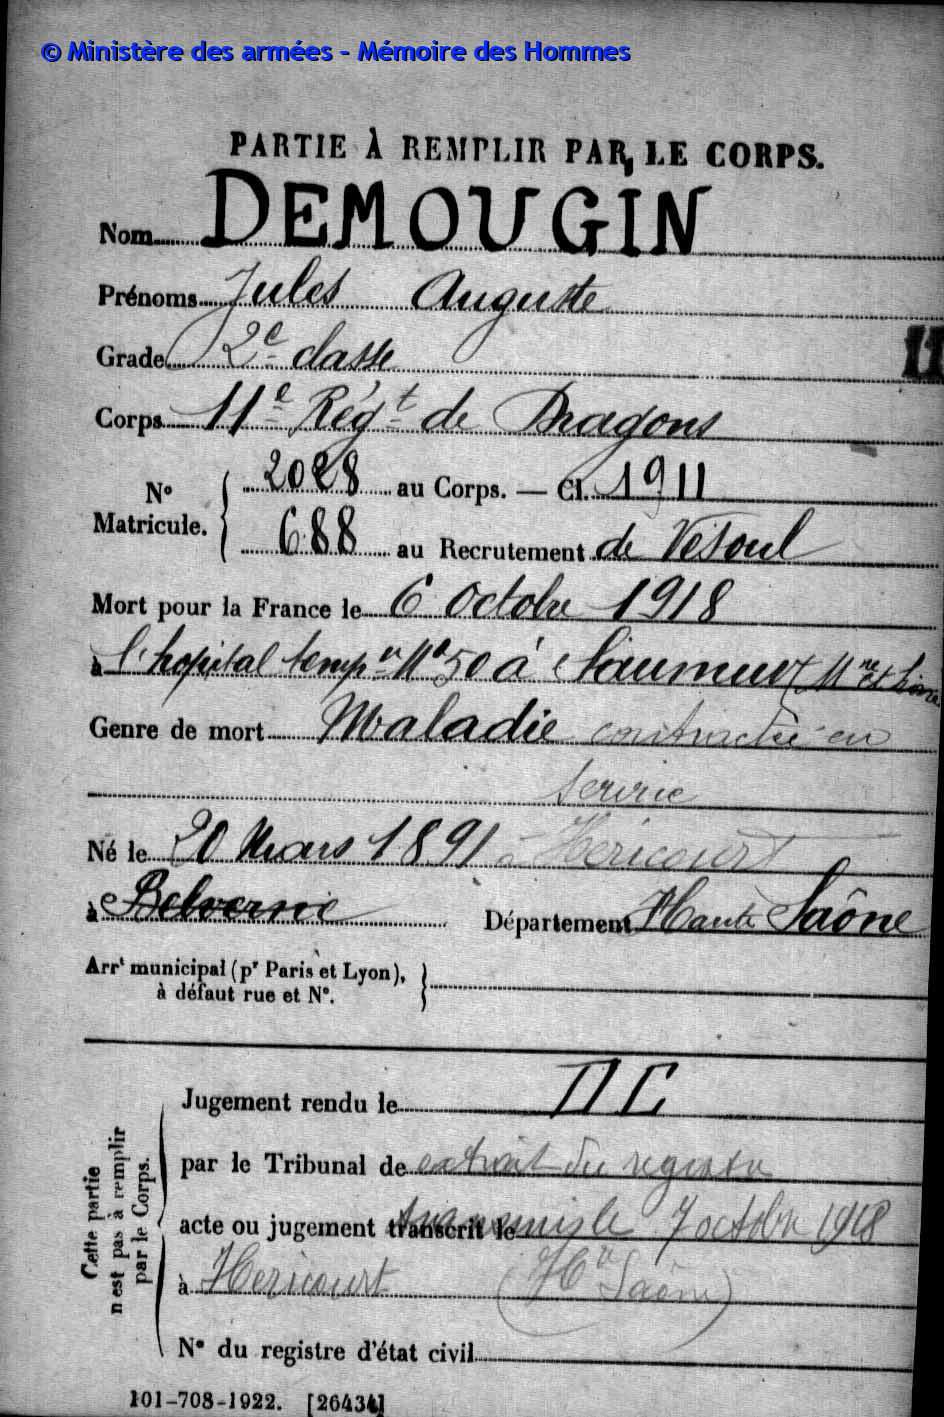 © Ministère des armées - Mémoire des Hommes
PARTIE À REMPLIR PAR LE CORPS.
Nom DEMOUGIN
Prénoms Jules Auguste
Grade 2e classe
11
Corps 11e Régt de Dragons
N° Matricule. { 2028 au Corps. — Cl. 1911
688 au Recrutement de Vesoul
Mort pour la France le 6 Octobre 1918
à l'hopital temp re N° 50 à Saumur (Mne et Loire
Genre de mort Maladie contractée en
service
Né le 20 Mars 1891 à Héricourt
à Belverne Département Haute Saône
Arrt municipal (pr Paris et Lyon),
à défaut rue et N°. }
Cette partie n'est pas à remplir par le Corps.
Jugement rendu le DC
par le Tribunal de extrait du registre
acte ou jugement transcrit le transmis le 7 octobre 1918
à Hericourt (Hte Saône)
N° du registre d'état civil
101-708-1922. [26434]